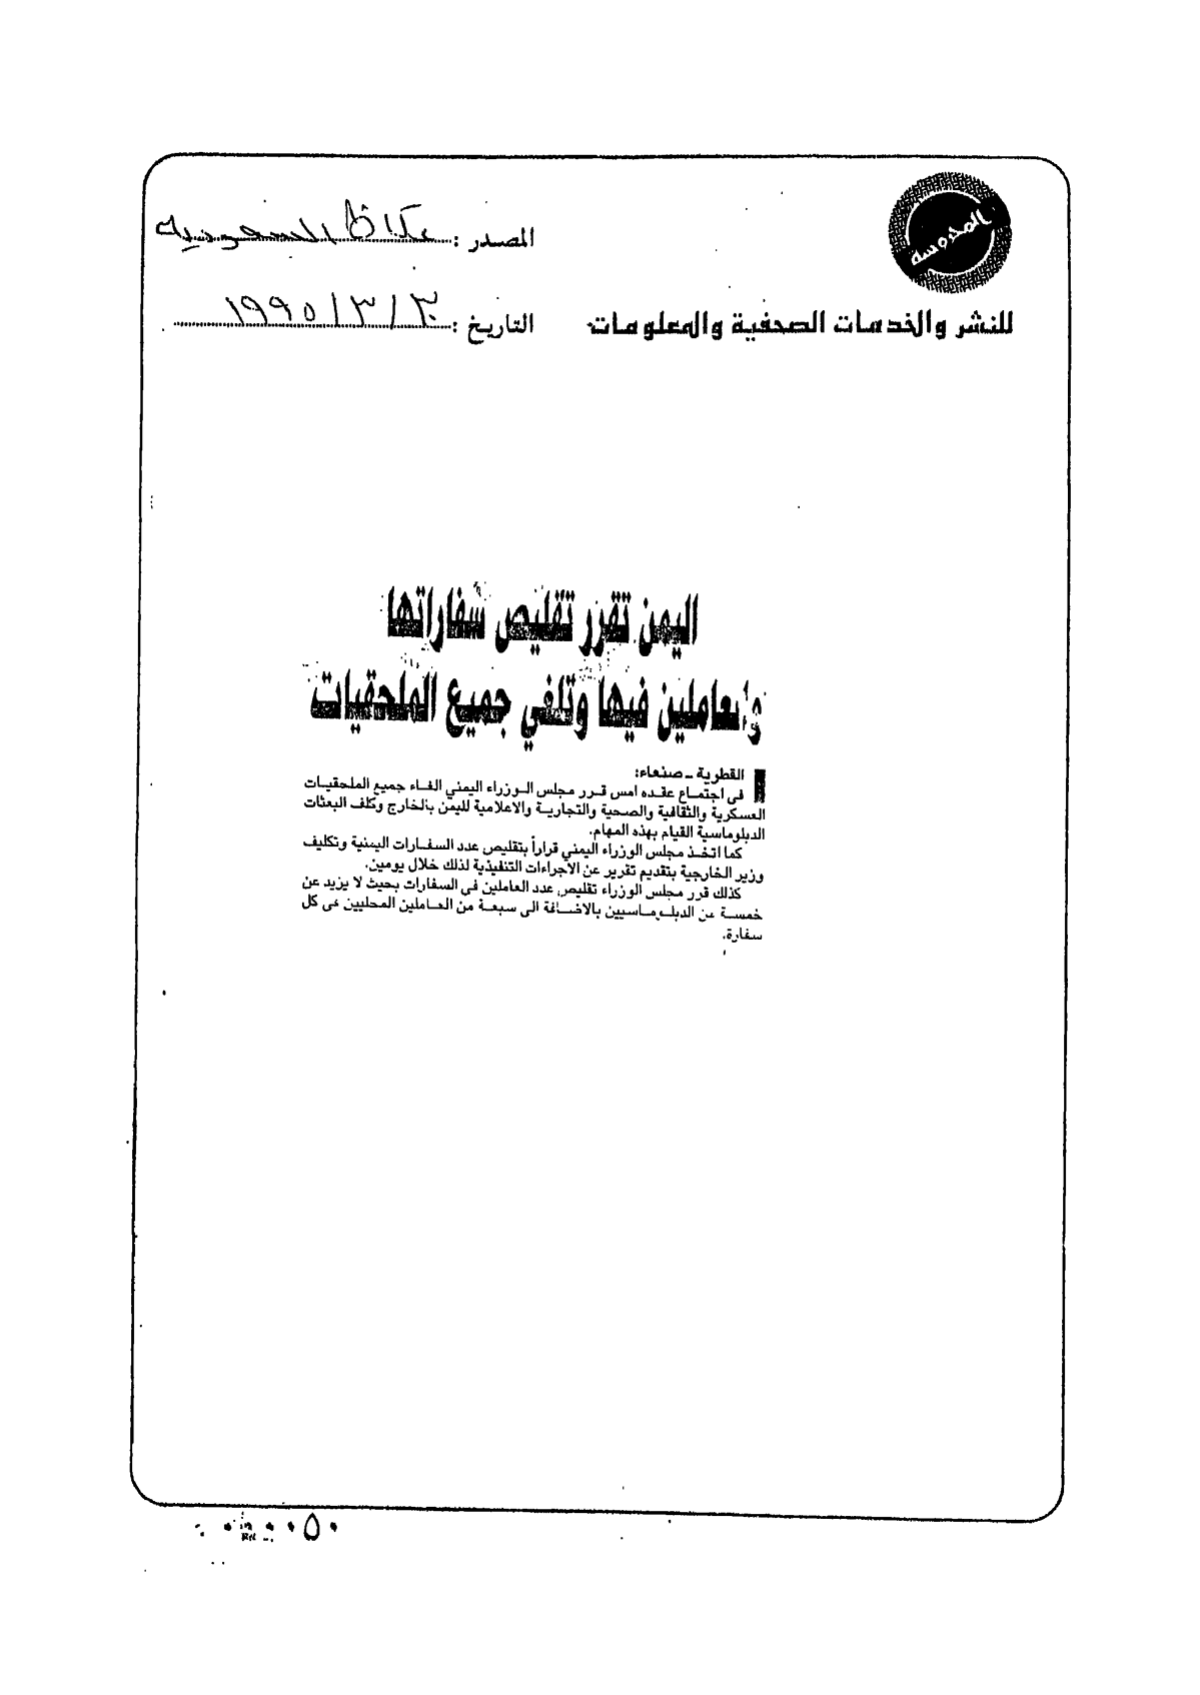 المحروسة
المصدر : عكاظ السعودية
للنشر والخدمات الصحفية والمعلومات
التاريخ : ٣٠ / ٣ / ١٩٩٥
اليمن تقرر تقليص سفاراتها
والعاملين فيها وتلغي جميع الملحقيات
القطرية ـ صنعاء:
في اجتماع عقده امس قرر مجلس الوزراء اليمني الغاء جميع الملحقيات
العسكرية والثقافية والصحية والتجارية والاعلامية لليمن بالخارج وكلف البعثات
الدبلوماسية القيام بهذه المهام.
كما اتخذ مجلس الوزراء اليمني قراراً بتقليص عدد السفارات اليمنية وتكليف
وزير الخارجية بتقديم تقرير عن الاجراءات التنفيذية لذلك خلال يومين.
كذلك قرر مجلس الوزراء تقليص عدد العاملين في السفارات بحيث لا يزيد عن
خمسة من الدبلوماسيين بالاضافة الى سبعة من العاملين المحليين في كل
سفارة.